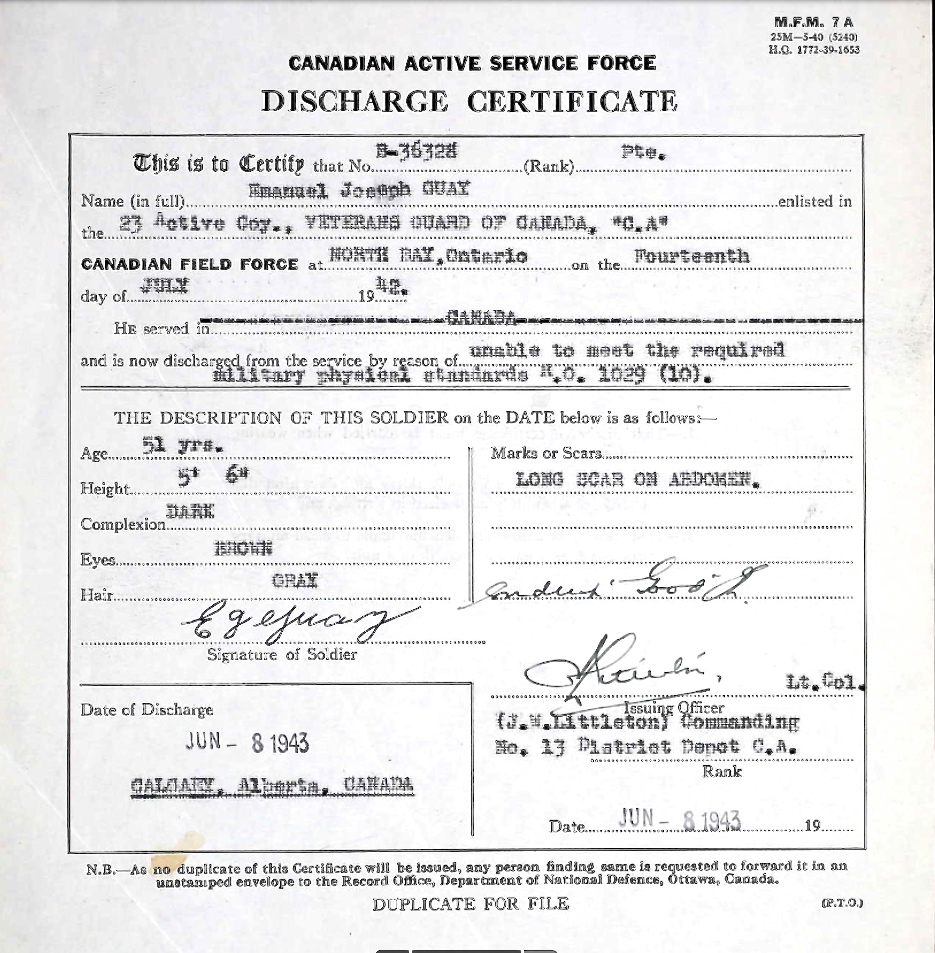 M.F.M. 7 A
25M—5-40 (5240)
H.Q. 1772-39-1653
CANADIAN ACTIVE SERVICE FORCE
DISCHARGE CERTIFICATE
This is to Certify that No. B-36328 (Rank) Pte.
Name (in full) Emanuel Joseph GUAY enlisted in
the 23 Active Coy., VETERANS GUARD OF CANADA, "C.A"
CANADIAN FIELD FORCE at NORTH BAY, Ontario on the Fourteenth
day of JULY 19 42.
HE served in CANADA
and is now discharged from the service by reason of unable to meet the required
military physical standards R.O. 1029 (10).
THE DESCRIPTION OF THIS SOLDIER on the DATE below is as follows:—
Age 51 yrs.
Height 5' 6"
Complexion DARK
Eyes BROWN
Hair GRAY
Marks or Scars
LONG SCAR ON ABDOMEN.
E J Guay
Signature of Soldier
Lt.Col.
Issuing Officer
(J.W.Littleton) Commanding
No. 13 District Depot C.A.
Rank
Date of Discharge
JUN - 8 1943
CALGARY, Alberta, CANADA
Date JUN - 8 1943 19
N.B.—As no duplicate of this Certificate will be issued, any person finding same is requested to forward it in an
unstamped envelope to the Record Office, Department of National Defence, Ottawa, Canada.
DUPLICATE FOR FILE
(P.T.O.)